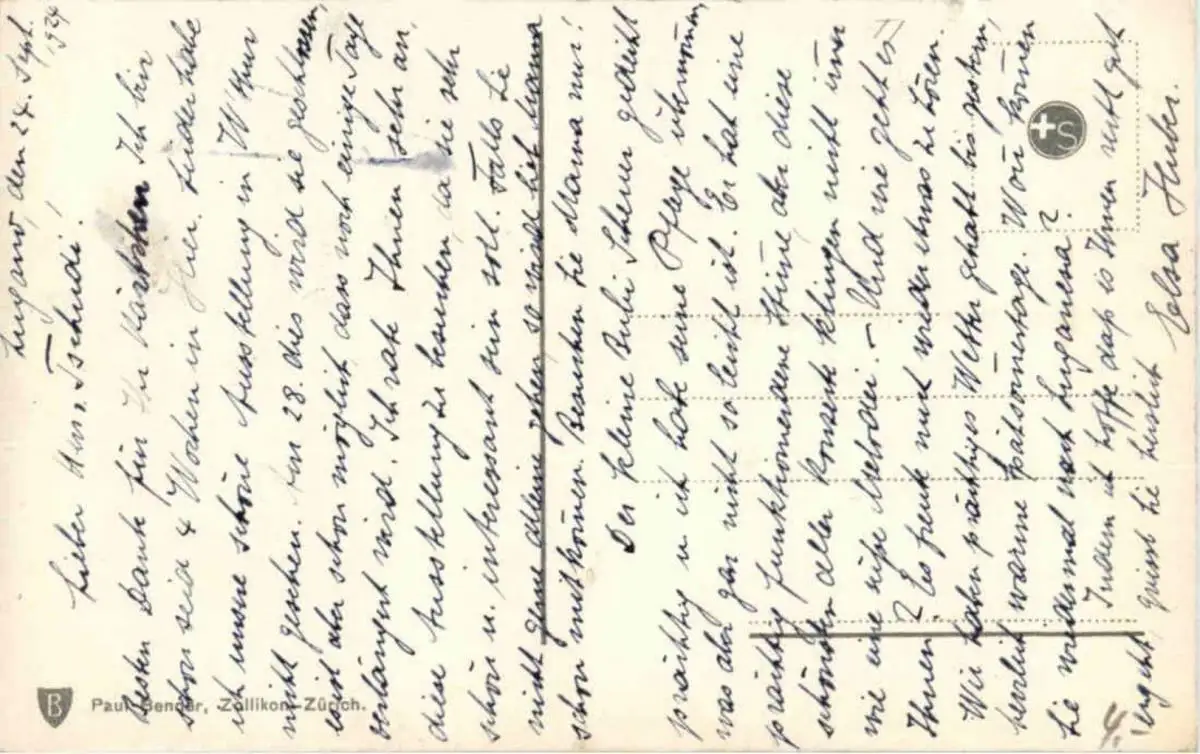 Lugano, den 24. Sept. 1924
Lieber Herr Tschudi!
Besten Dank für Ihr Kärtchen. Ich bin
schon seid 4 Wochen in hier. Leider habe
ich unsere schöne Ausstellung in W'thur
nicht gesehen. Am 28. dies wird sie geschlossen,
es ist aber schon möglich, dass noch einige Tage
verlängert wird. Ich rate Ihnen sehr an,
diese Ausstellung zu besuchen, da sie sehr
schön u. interessant sein soll. Falls Sie
nicht gerne allein gehen, so wird lieb Mama
schon mitkönnen. Besuchen Sie Mama nur!
Der kleine Bubi Scheuer gedeiht
prächtig u. ich habe seine Pflege übernommen,
was aber gar nicht so leicht ist. Er hat eine
prächtig funktionierende Stimme aber diese
schönsten aller Konzerte klingen nicht immer
wie eine süsse Melodei. – Und wie geht es
Ihnen? Es freute mich wieder etwas zu hören.
Wir haben prächtiges Wetter gehabt bis gestern,
herrlich warme Spätsommertage. Wann können
Sie wiedermal nach Luganersa?
Indem ich hoffe dass es Ihnen recht gut
ergeht, grüsst Sie herzlich
Elsa Huber.
S
B
Paul Bender, Zollikon-Zürich.